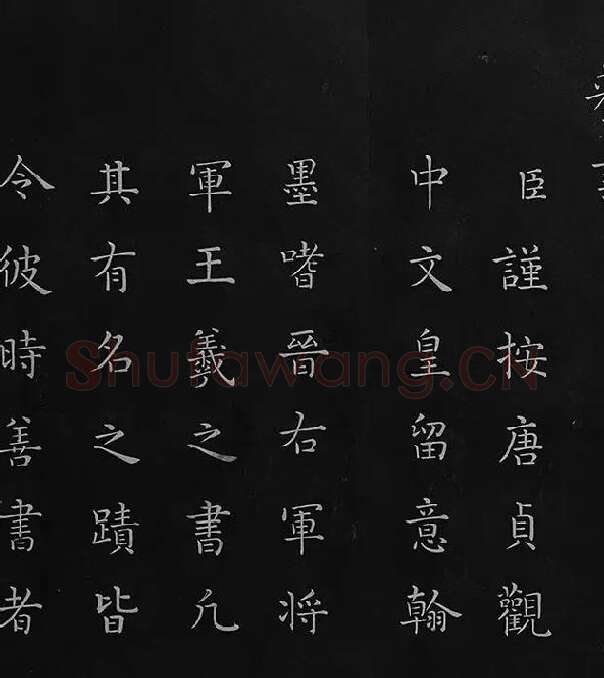 臣謹按唐貞觀
中文皇留意翰
墨嗜晉右軍將
軍王羲之書凡
其有名之蹟皆
令彼時善書者
Shufawang.CN